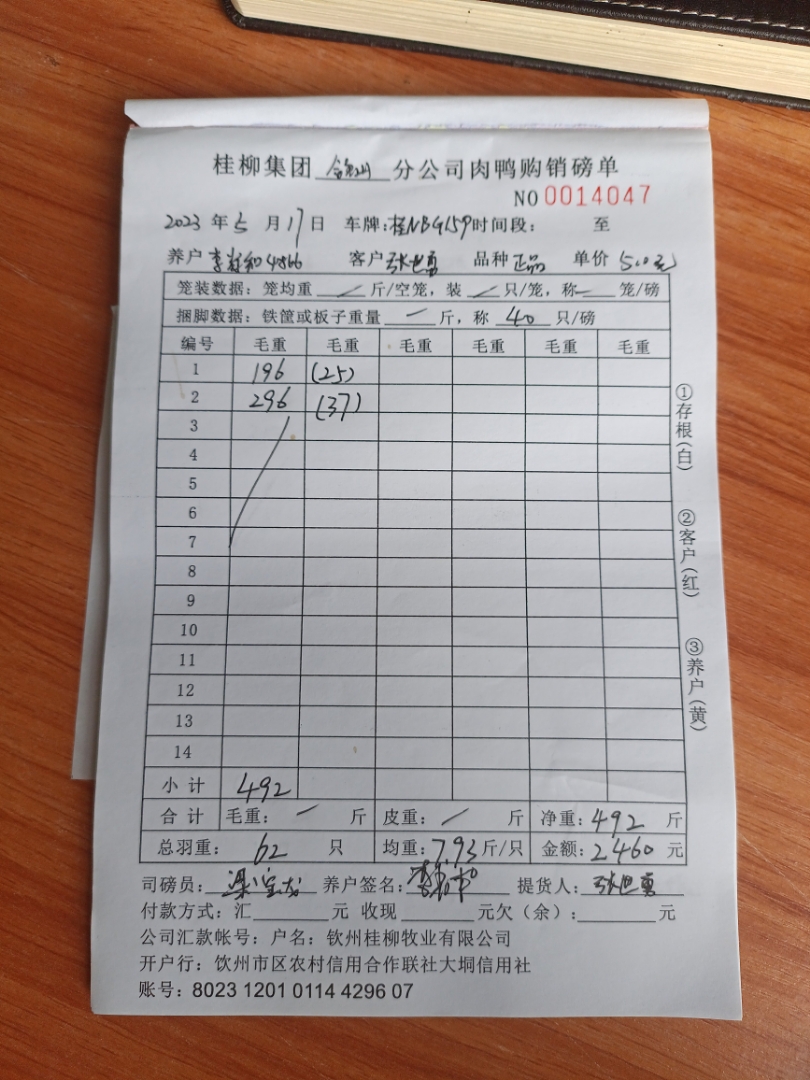 桂柳集团 分公司肉鸭购销磅单
NO 0014047
2023 年 5 月 17 日 车牌:桂NBG159 时间段: 至
养户 4866 客户 张世勇 品种 正品 单价 5.0元
笼装数据: 笼均重 / 斤/空笼, 装 / 只/笼, 称 — 笼/磅
捆脚数据: 铁筐或板子重量 — 斤, 称 40 只/磅
编号 毛重 毛重 毛重 毛重 毛重 毛重
1 196 (25)
2 296 (37)
3
4
5
6
7
8
9
10
11
12
13
14
小计 492
合计 毛重: — 斤 皮重: / 斤 净重: 492 斤
总羽重: 62 只 均重: 7.93 斤/只 金额: 2460 元
司磅员: 养户签名: 提货人: 张世勇
付款方式: 汇 元 收现 元欠(余): 元
公司汇款帐号: 户名: 钦州桂柳牧业有限公司
开户行: 饮州市区农村信用合作联社大垌信用社
账号: 8023 1201 0114 4296 07
①存根(白)
②客户(红)
③养户(黄)